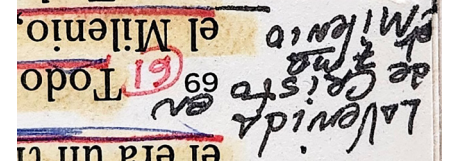 La Venida
de Cristo en
el Milenio
él era un t
69 61 Todo
el Milenio,